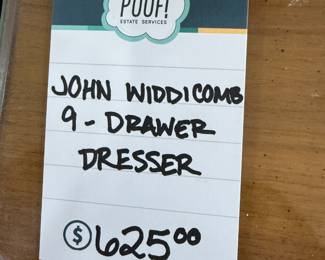 POOF!
ESTATE SERVICES
JOHN WIDDICOMB
9-DRAWER
DRESSER
$625.00